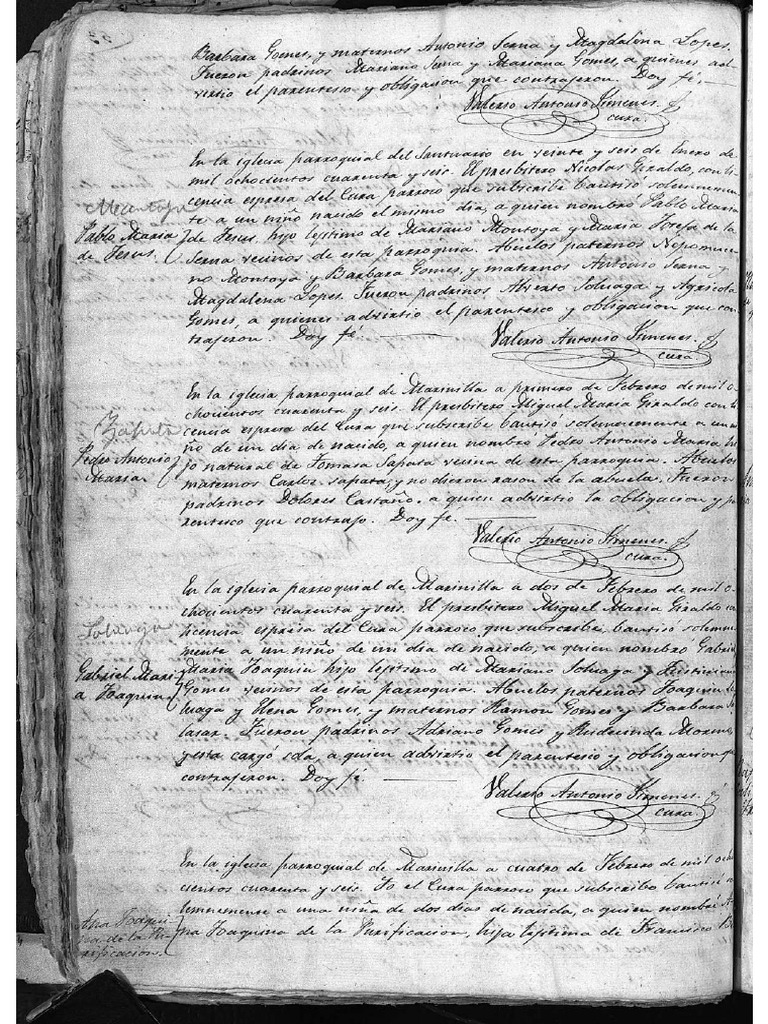 Barbara Gomes, y maternos Antonio Serna y Magdalena Lopes.
Fueron padrinos Mariano Serna y Mariana Gomes, a quienes ad
virtio el parentesco y obligacion que contrajeron. Doy fé.
Valerio Antonio Jimenes.
cura.
En la iglesia parroquial del Santuario en veinte y seis de Enero de
mil ochocientos cuarenta y seis. El presbitero Nicolas Giraldo, con li
cencia espresa del Cura parroco que subscribe bautisó solemnemen
te a un niño nacido el mismo dia, a quien nombró Pablo Maria
Montoya
Pablo Maria
de Jesus.
de Jesus, hijo lejitimo de Mariano Montoya y Maria Josefa de la
Serna vecinos de esta parroquia. Abuelos paternos Nepomuce
no Montoya y Barbara Gomes, y maternos Antonio Serna y
Magdalena Lopes. Fueron padrinos Alverto Soluaga y Agricola
Gomes, a quienes advirtio el parentesco y obligacion que con
trajeron. Doy fé
Valerio Antonio Jimenes.
cura.
En la iglesia parroquial de Marinilla a primero de Febrero de mil o
chocientos cuarenta y seis. El presbitero Miguel Maria Giraldo con li
cencia espresa del Cura que subscribe bautisó solemnemente a un ni
Zapata
Pedro Antonio
Maria.
ño de un dia de nacido, a quien nombró Pedro Antonio Maria hi
jo natural de Tomasa Sapata vecina de esta parroquia. Abuelos
maternos Carlos Sapata, y no dieron rason de la abuela. Fueron
padrinos Dolores Castaño, a quien advirtio la obligacion y pa
rentesco que contrajo. Doy fé.
Valerio Antonio Jimenes.
cura.
En la iglesia parroquial de Marinilla a dos de Febrero de mil o
chocientos cuarenta y seis. El presbitero Miguel Maria Giraldo co
licencia espresa del Cura parroco que subscribe, bautisó solemne
mente a un niño de un dia de nacido, a quien nombró Gabriel
Gabriel Mari
a Joaquin
Maria Joaquin hijo lejitimo de Mariano Soluaga y
Gomes vecinos de esta parroquia. Abuelos paternos Joaquin So
luaga y Elena Gomes, y maternos Ramon Gomes y Barbara Sa
lasar. Fueron padrinos Adriano Gomes y Rudecinda Moreno
y esta cargó sola, a quien advirtio el parentesco y obligacion que
contrajeron. Doy fé
Valerio Antonio Jimenes.
cura.
En la iglesia parroquial de Marinilla a cuatro de Febrero de mil ocho
cientos cuarenta y seis. Yo el Cura parroco que subscribo bautisé so
lemnemente a una niña de dos dias de nacida, a quien nombré A
Ana Joaqui
na de la Pu
rificacion.
na Joaquina de la Purificacion, hija lejitima de Francisco